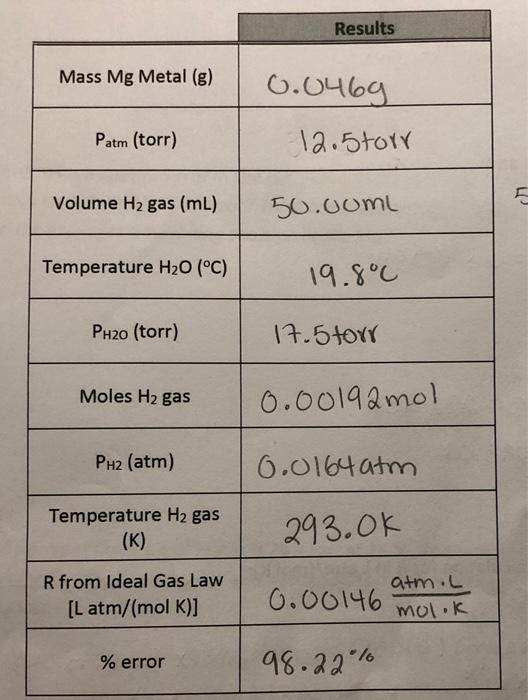 Results
Mass Mg Metal (g) 0.046g
Patm (torr) 12.5torr
Volume H2 gas (mL) 50.00mL
5
Temperature H2O (°C) 19.8°C
PH2O (torr) 17.5torr
Moles H2 gas 0.00192mol
PH2 (atm) 0.0164atm
Temperature H2 gas
(K) 293.0K
R from Ideal Gas Law
[L atm/(mol K)] 0.00146 atm·L/mol·K
% error 98.22%